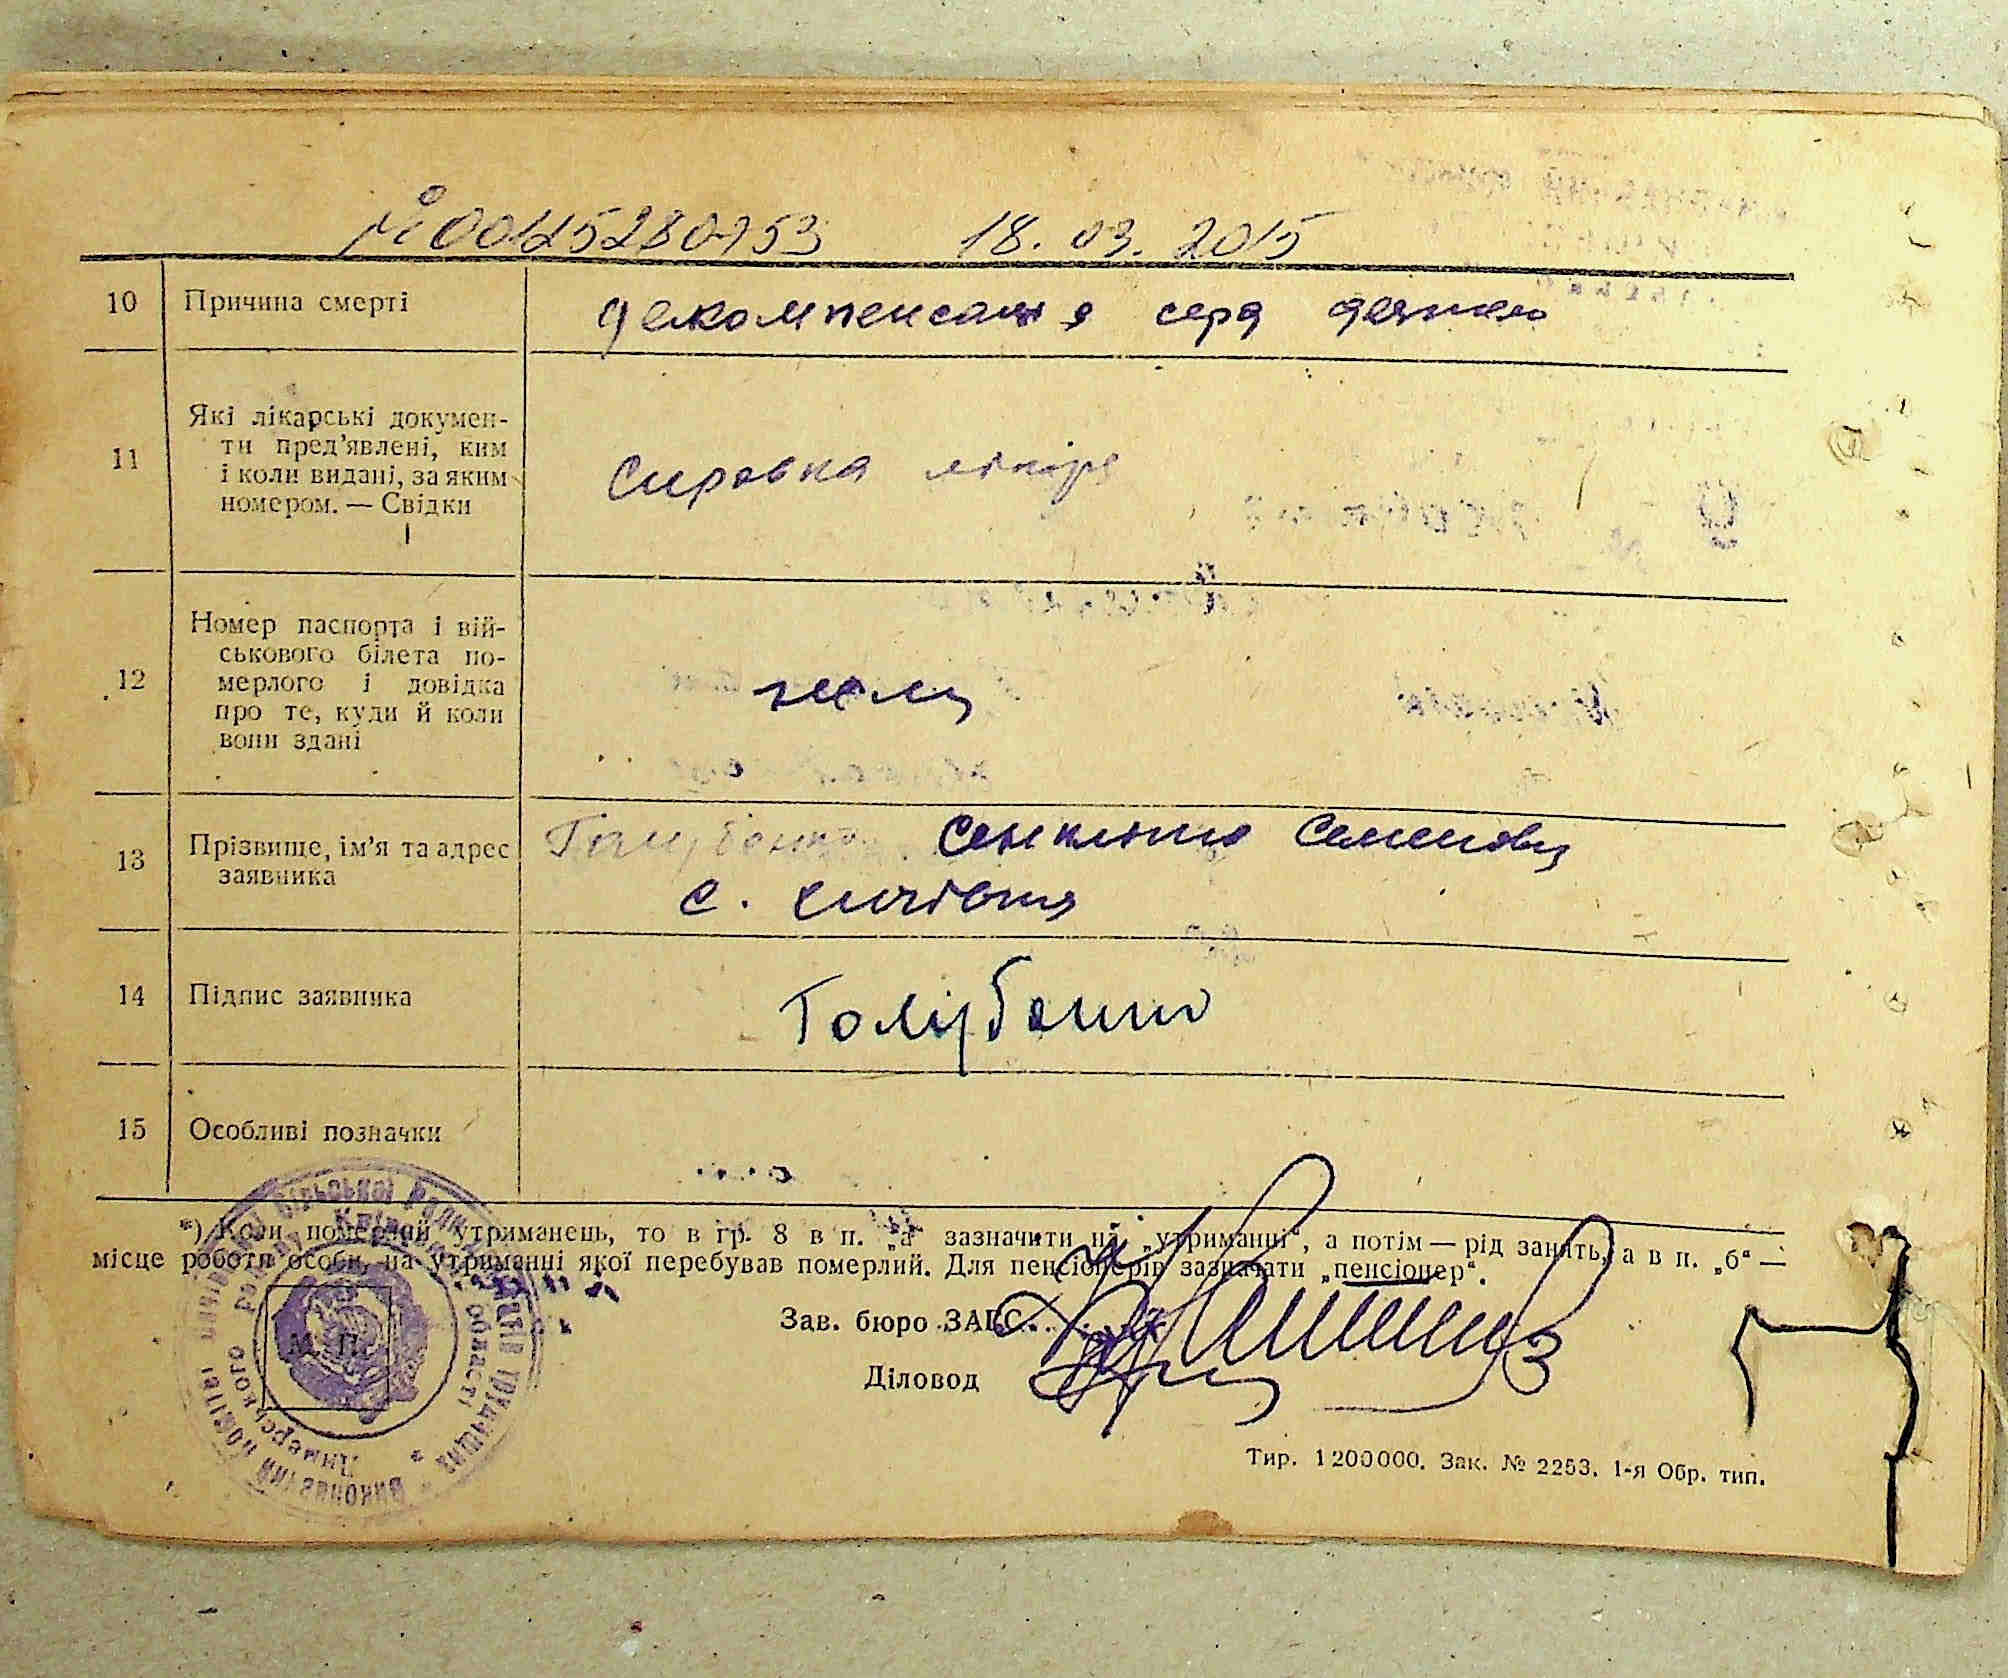 № 00125280753 18.03.2015
10 Причина смерті
декомпенсация серд деятел
11 Які лікарські докумен-
ти пред’явлені, ким
і коли видані, за яким
номером. — Свідки
Справка лікаря
12 Номер паспорта і вій-
ськового білета по-
мерлого і довідка
про те, куди й коли
вони здані
нема
13 Прізвище, ім’я та адрес
заявника
Голубенко Семеновна
с.
14 Підпис заявника
Голубенко
15 Особливі позначки
*) Коли померлий утриманець, то в гр. 8 в п. „а“ зазначити на „утриманні“, а потім — рід занять, а в п. „б“ —
місце роботи особи, на утриманні якої перебував померлий. Для пенсіонерів зазначати „пенсіонер“.
М. П.
Зав. бюро ЗАГС
Діловод
Тир. 1200000. Зак. № 2253. 1-я Обр. тип.